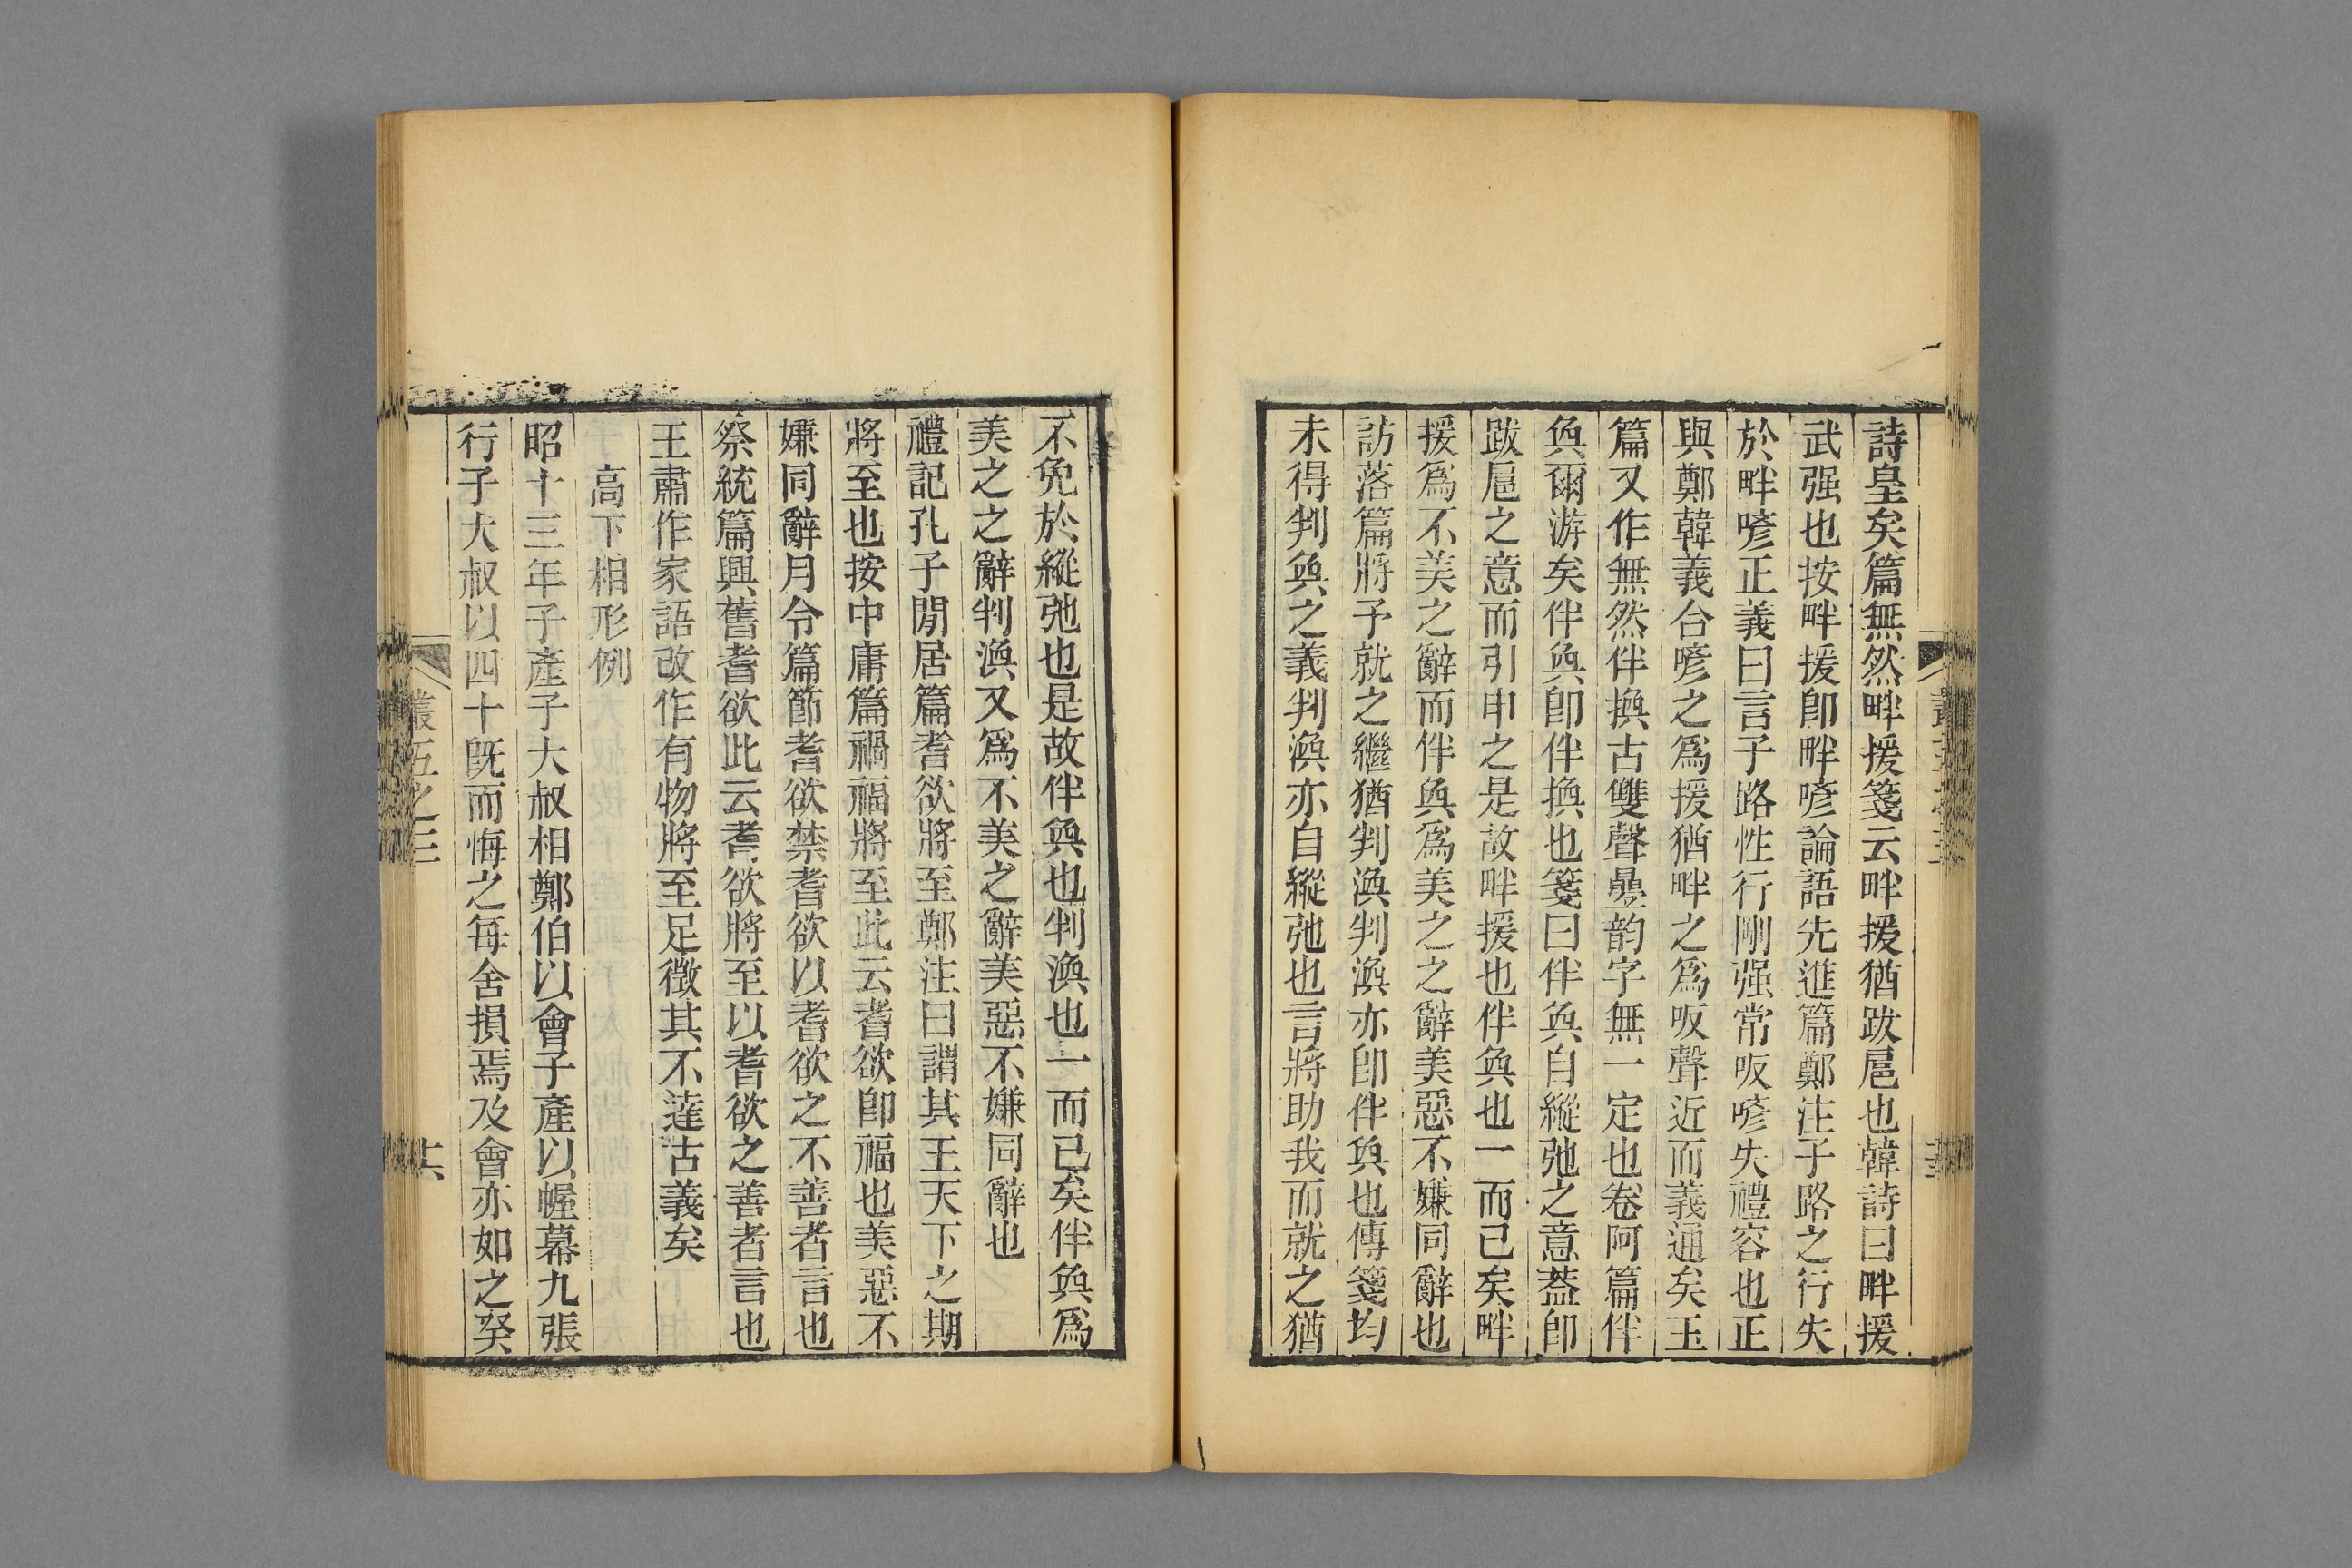 詩皇矣篇無然畔援箋云畔援猶跋扈也韓詩曰畔援
武强也按畔援卽畔喭論語先進篇鄭注子路之行失
於畔喭正義曰言子路性行剛强常吸喭失禮容也正
與鄭韓義合喭之爲援猶畔之爲吸聲近而義通矣玉
篇又作無然伴換古雙聲曡韵字無一定也卷阿篇伴
奐爾游矣伴奐卽伴換也箋曰伴奐自縱弛之意葢卽
跋扈之意而引申之是故畔援也伴奐也一而已矣畔
援爲不美之辭而伴奐爲美之之辭美惡不嫌同辭也
訪落篇將予就之繼猶判渙判渙亦卽伴奐也傳箋均
未得判奐之義判渙亦自縱弛也言將助我而就之猶
不免於縱弛也是故伴奐也判渙也一而已矣伴奐爲
美之之辭判渙又爲不美之辭美惡不嫌同辭也
禮記孔子閒居篇耆欲將至鄭注曰謂其王天下之期
將至也按中庸篇禍福將至此云耆欲卽福也美惡不
嫌同辭月令篇節耆欲禁耆欲以耆欲之不善者言也
祭統篇興舊耆欲此云耆欲將至以耆欲之善者言也
王肅作家語改作有物將至足徵其不達古義矣
高下相形例
昭十三年子產子大叔相鄭伯以會子產以幄幕九張
行子大叔以四十旣而悔之每舍損焉及會亦如之癸
叢五之三